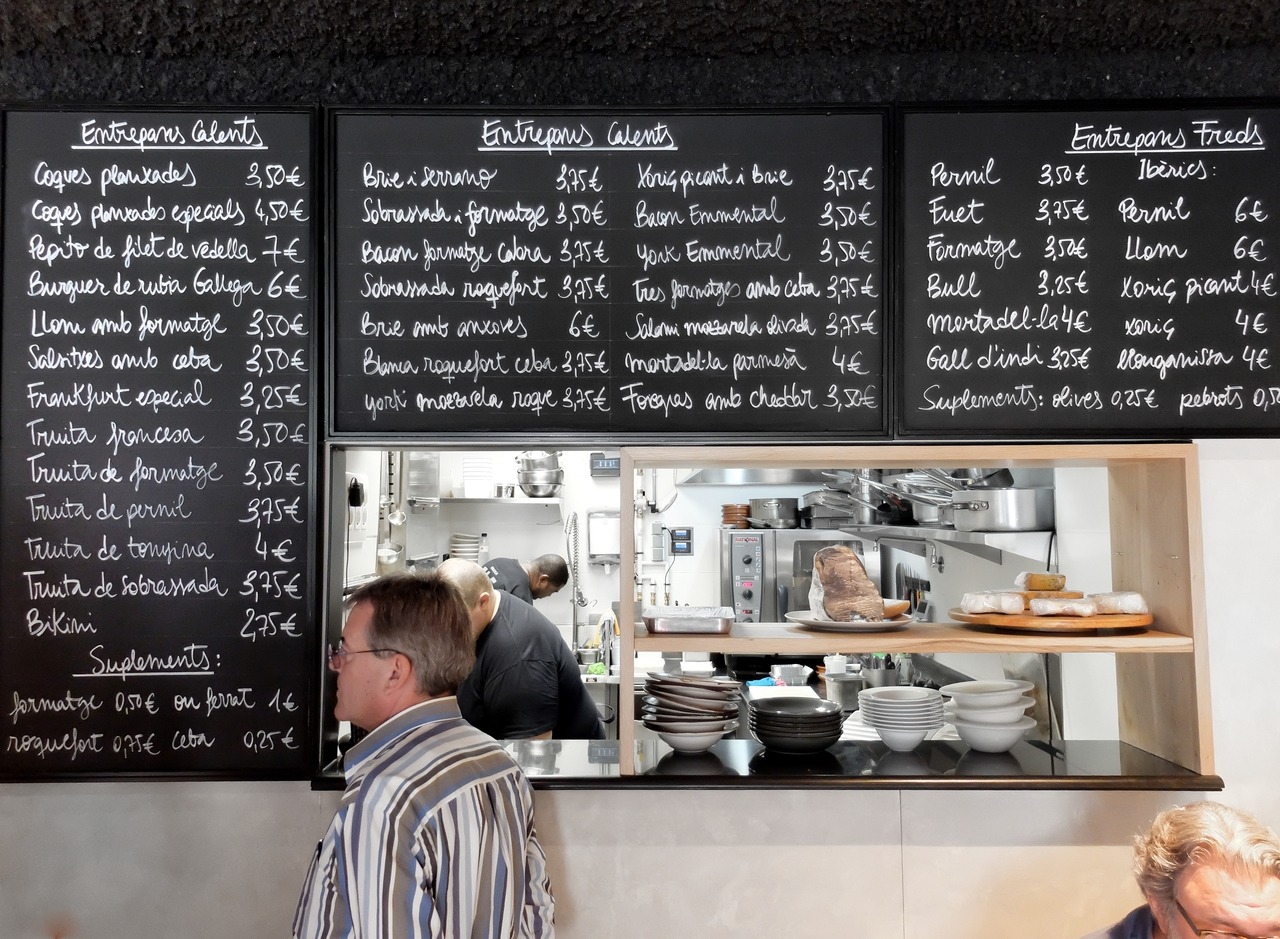 Entrepans Calents
Coques planxades 3,50€
Coques planxades especials 4,50€
Pepito de filet de vedella 7€
Burguer de rubia Gallega 6€
Llom amb formatge 3,50€
Salsitxes amb ceba 3,50€
Frankfurt especial 3,25€
Truita francesa 3,50€
Truita de formatge 3,50€
Truita de pernil 3,75€
Truita de tonyina 4€
Truita de sobrassada 3,75€
Bikini 2,75€
Suplements:
formatge 0,50€ ou ferrat 1€
roquefort 0,75€ ceba 0,25€
Entrepans Calents
Brie i serrano 3,75€
Sobrassada i formatge 3,50€
Bacon formatge cabra 3,75€
Sobrassada roquefort 3,75€
Brie amb anxoves 6€
Blanca roquefort ceba 3,75€
york mozzarela roque 3,75€
Xoriç picant i Brie 3,75€
Bacon Emmental 3,50€
York Emmental 3,50€
Tres formatges amb ceba 3,75€
Salami mozzarela olivada 3,75€
mortadel·la parmesà 4€
Foregras amb cheddar 3,50€
Entrepans Freds
Pernil 3,50€
Fuet 3,75€
Formatge 3,50€
Bull 3,25€
mortadel·la 4€
Gall d'indi 3,25€
Ibèrics:
Pernil 6€
Llom 6€
Xoriç picant 4€
xoriç 4€
llonganissa 4€
Suplements: olives 0,25€ pebrots 0,5
RATIONAL